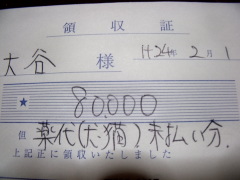 領収証
大谷 様 H24年 2月 1
★ 80,000
但 薬代(犬、猫)未払い分.
上記正に領収いたしました